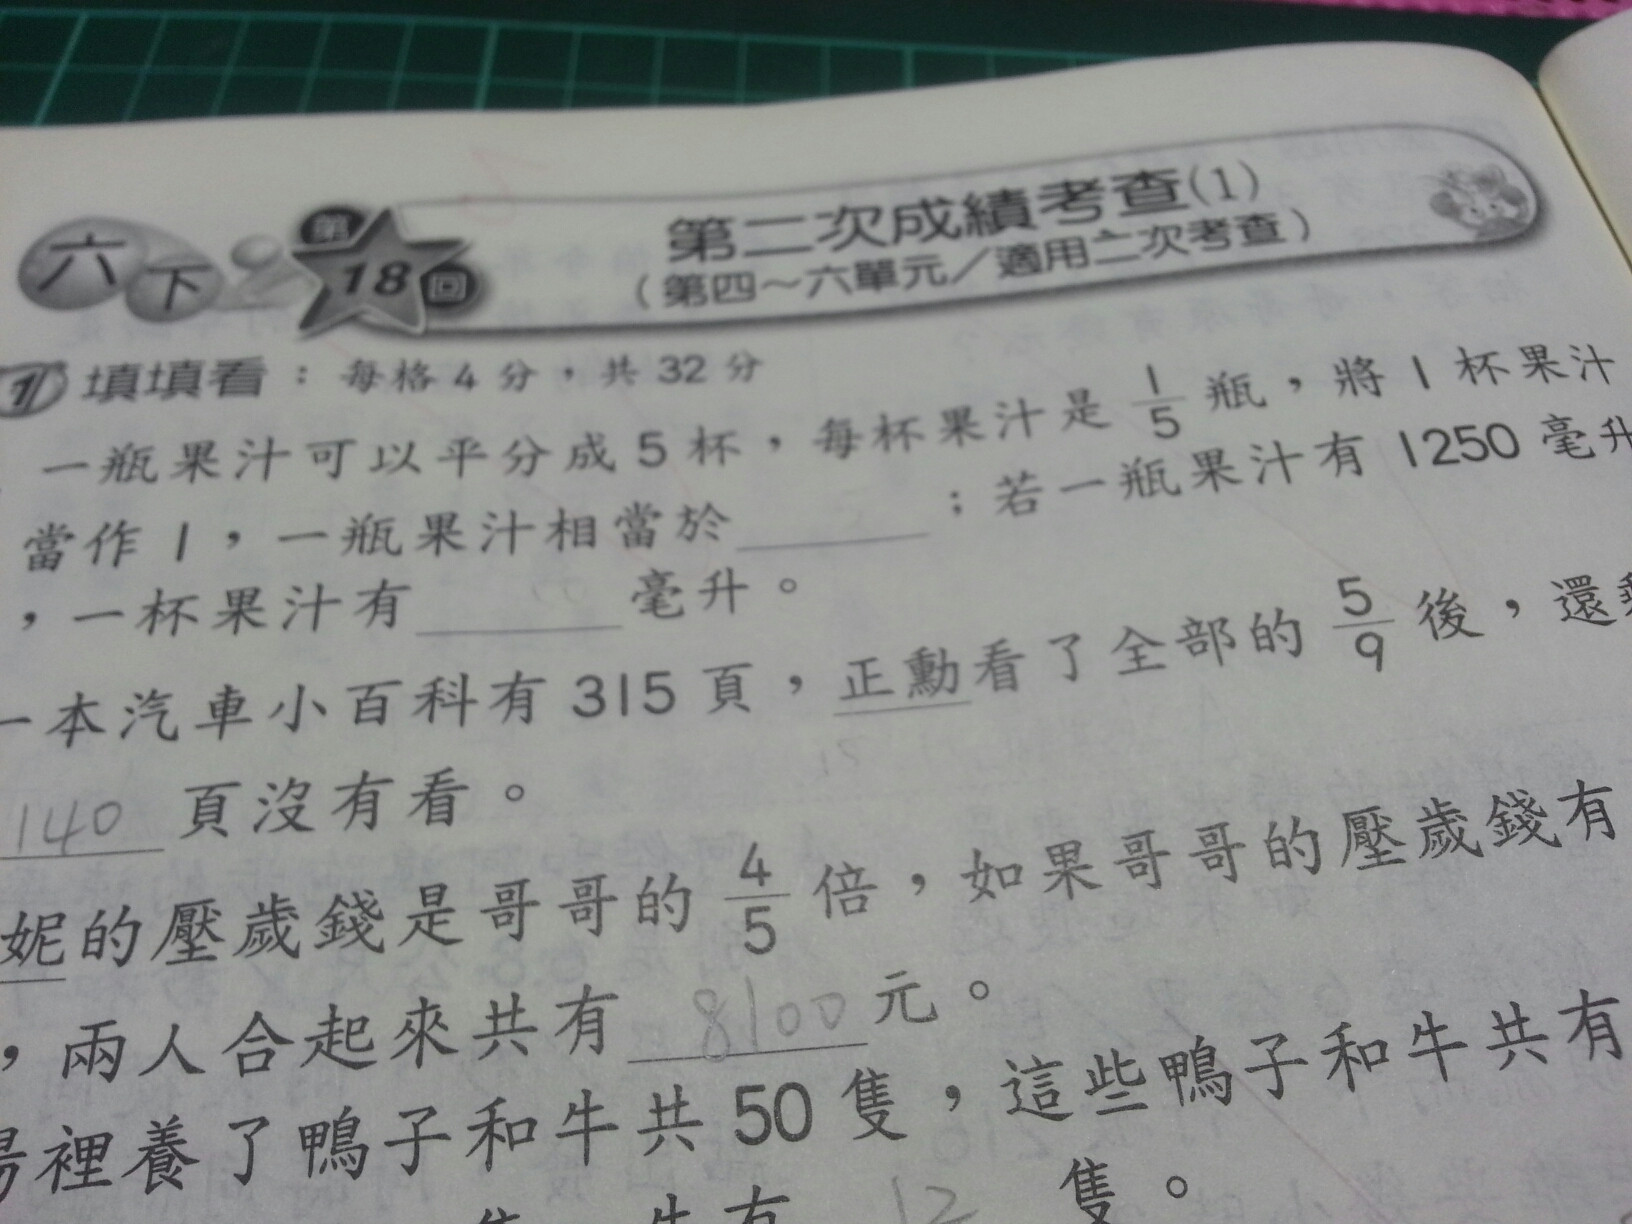 六下 第18回 第二次成績考查(1)
(第四~六單元/適用二次考查)
1 填填看:每格4分,共32分
一瓶果汁可以平分成5杯,每杯果汁是1/5瓶,將1杯果汁
當作1,一瓶果汁相當於____;若一瓶果汁有1250毫升
,一杯果汁有____毫升。
一本汽車小百科有315頁,正勳看了全部的5/9後,還
140頁沒有看。
妮的壓歲錢是哥哥的4/5倍,如果哥哥的壓歲錢有
,兩人合起來共有8100元。
場裡養了鴨子和牛共50隻,這些鴨子和牛共有
隻 牛有12隻。